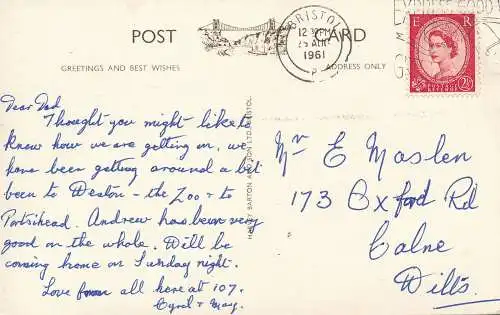 POST CARD
GREETINGS AND BEST WISHES
ADDRESS ONLY
BRISTOL
12 PM
1961
E R
2½
Dear Dad
Thought you might like to
know how we are getting on, we
have been getting around a bit
been to Weston - the Zoo + to
Portishead. Andrew has been very
good on the whole. Will be
coming home on Sunday night.
Love from all here at 107.
Cyril + May.
HARVEY BARTON AND SON LTD BRISTOL
Mr E Maslen
173 Oxford Rd
Calne
Wilts.